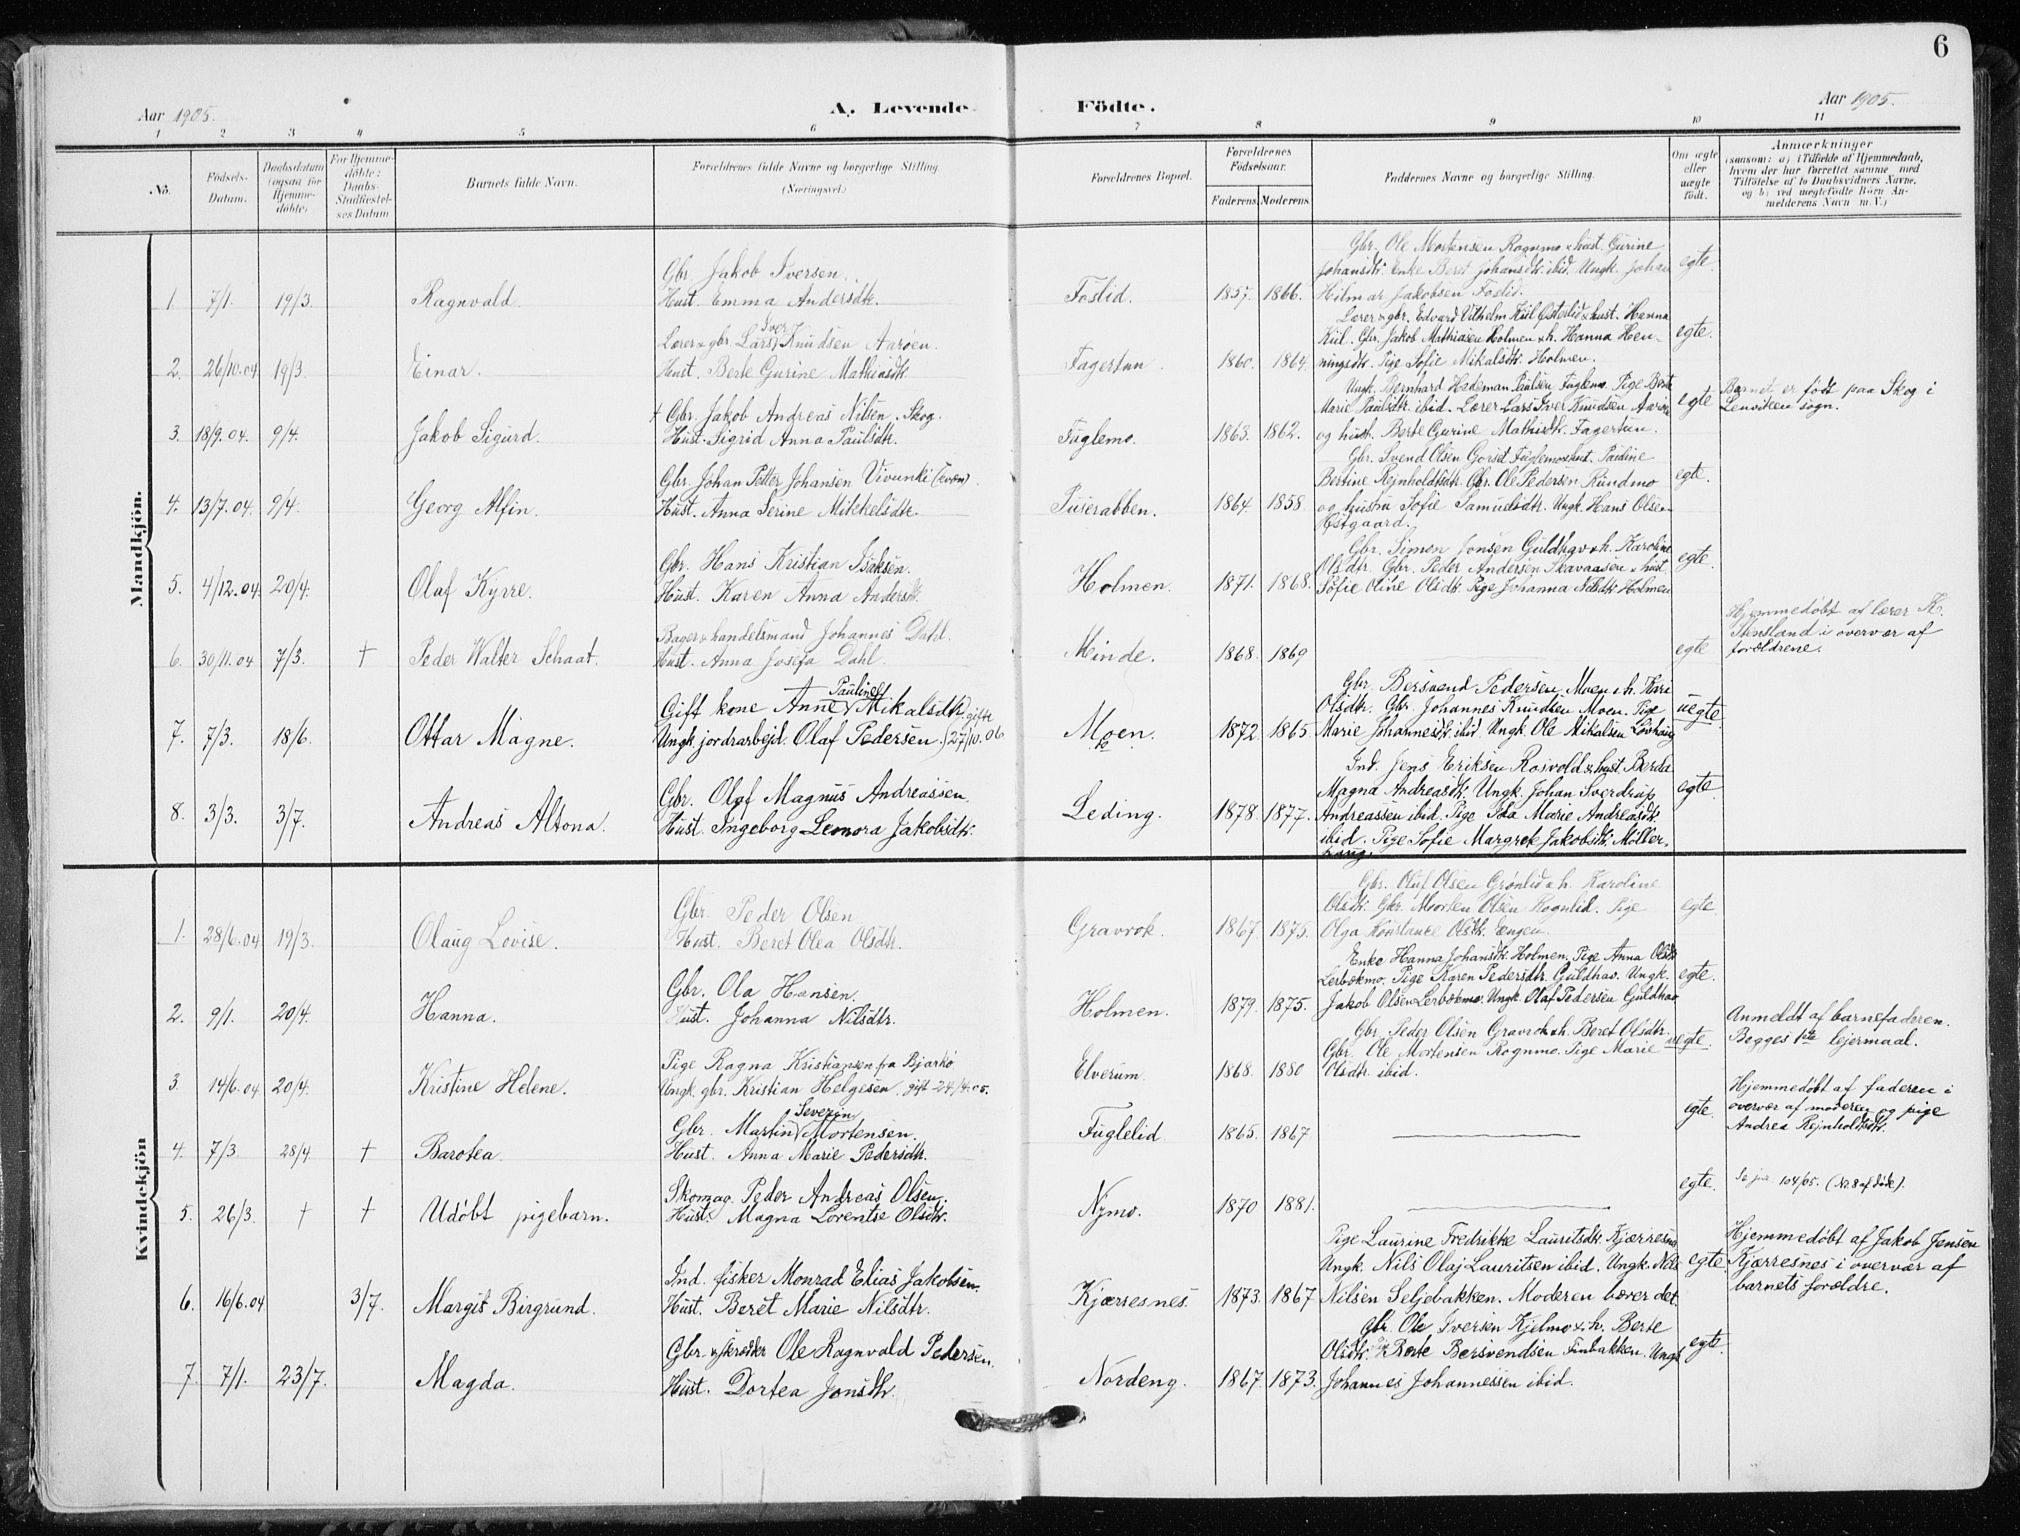 6
Aar 1905.
A. Levende
Födte.
Aar 1905.
1 2 3 4 5 6 7 8 9 10 11
No.
Födsels-Datum.
Daabsdatum (ogsaa for Hjemme-döbte)
For Hjemme-döbte: Daabs-Stadfæstel-ses Datum
Barnets fulde Navn.
Forældrenes fulde Navne og borgerlige Stilling. (Næringsvei.)
Forældrenes Bopæl.
Forældrenes Födselsaar.
Faderens. Moderens.
Faddernes Navne og borgerlige Stilling.
Om ægte eller uægte födt.
Anmærkninger
(saasom: a) i Tilfælde af Hjemmedaab,
hvem der har forrettet samme med
Tilföielse af to Daabsvidners Navne,
og b) ved uægtefödte Börn An-
melderens Navn m. V.)
Mandkjön.
Gbr. Jakob Iversen.
Gbr. Ole Mortensen Rognmo & hust. Gurine
Johansdtr. Enke Beret Johansdtr. ibid. Ungk. Johan
1. 7/1. 19/3. Ragnvald. Hust. Emma Andersdtr. Foslid. 1857. 1866. Hilmar Jakobsen Foslid. egte.
Lærer & gbr. Lars Iver Knudsen Aaroen.
Lærer & gbr. Edvard Vilhelm Kiil Østerlid & hust. Hanna
Kiil. Gbr. Jakob Mathiasen Holmen & h. Hanna Hen-
2. 26/10.04 19/3. Einar. Hust. Berte Gurine Mathiasdtr. Fagertun. 1860. 1864. ningsdtr. Pige Sofie Mikalsdtr. Holmen. egte.
† Gbr. Jakob Andreas Nilsen, Skog.
Ungk. Bernhard Hedeman Paulsen Fuglemo. Pige Berte
Marie Paulsdtr. ibid. Lærer Lars Iver Knudsen Aaroen
3. 18/9.04. 9/4. Jakob Sigurd. Hust. Sigrid Anna Paulsdtr. Fuglemo. 1863. 1862. og hust. Berte Gurine Mathisdtr. Fagertun. egte
Barnet er født paa Skog i
Lenviken sogn.
Gbr. Johan Petter Johansen Vivunki (kvæn).
Gbr. Svend Olsen Gorset Fuglemo & hust. Pauline
Bertine Rejnholdtsdtr. Gbr. Ole Pedersen Rundmo
4. 13/7.04. 9/4. Georg Alfin. Hust. Anna Serine Mikkelsdtr. 1864. 1858. og hustru Sofie Samuelsdtr. Ungk. Hans Olsen
Østgaard. egte.
Gbr. Hans Kristian Isaksen.
Gbr. Simon Jonsen Guldhav & h. Karoline
Olsdtr. Gbr. Peder Andersen Skavaasen & hust.
5. 4/12.04. 20/4. Olaf Kyrre. Hust. Karen Anna Andersdtr. Holmen. 1871. 1868. Sofie Oline Olsdtr. Pige Johanna Nilsdtr. Holmen egte.
Bager & handelsmand Johannes Dahl.
6. 30/11.04 7/3. † Peder Walter Schaat. Hust. Anna Josefa Dahl. Minde. 1868. 1869 egte
Hjemmedøbt af lærer K.
Stensland i overvær af
forældrene.
Gift kone Anne Pauline Mikalsdtr. gifte
Gbr. Bersvend Pedersen Moen & h. Kari
Olsdtr. Gbr. Johannes Knudsen Moen. Pige
7. 7/3. 18/6. Ottar Magne. Ungk. jordarbejd. Olaf Pedersen. 27/10.06 Moen. 1872 1865. Marie Johannesdtr. ibid. Ungk. Ole Mikalsen Løvhaug uegte.
Gbr. Olaf Magnus Andreassen.
Ind. Jens Eriksen Rosvold & hust. Berda
Magna Andreasdtr. Ungk. Johan Sverdrup
8. 3/3. 3/7. Andreas Altona. Hust. Ingeborg Leonora Jakobsdtr. Leding. 1878. 1877. Andreassen ibid. Pige Ida Marie Andreasdtr.
ibid. Pige Sofie Margrete Jakobsdtr. Møller-
haug. egte.
Kvindekjön
Gbr. Peder Olsen
Gbr. Oluf Olsen Grønlid & h. Karoline
Olsdtr. Gbr. Morten Olsen Rognlid. Pige
1. 28/6.04 19/3. Olaug Lovise. Hust. Beret Olea Olsdtr. Gravrok. 1867. 1875. Olga Konstance Olsdtr. Engen. egte.
Gbr. Ola Hansen.
Enke Hanna Johansdtr. Holmen. Pige Anna Olsdtr.
Lerbækmo. Pige Karen Pedersdtr. Guldhav. Ungk.
2. 9/1. 20/4. Hanna. Hust. Johanna Nilsdtr. Holmen. 1879. 1875. Jakob Olsen Lerbækmo. Ungk. Olaf Pedersen Guldhav egte.
Pige Ragna Kristiansen fra Bjarkø.
Gbr. Peder Olsen Gravrok & h. Beret Olsdtr.
Gbr. Ole Mortensen Rognmo. Pige Marie
3. 14/6.04 20/4. Kristine Helene. Ungk. gbr. Kristian Helgesen, gift 24/4.05. Elverum. 1868. 1880 Olsdtr. ibid. uegte.
Anmeldt af barnefaderen.
Begges 1ste lejermaal.
Gbr. Martin Severin Mortensen.
4. 7/3. 28/4 † Barotea. Hust. Anna Marie Pedersdtr. Fuglelid. 1865. 1867 egte.
Hjemmedøbt af faderen i
overvær af moderen og pige
Andrea Rejnholdtsdtr.
Skomag. Peder Andreas Olsen.
5. 26/3. † † Udøbt pigebarn. Hust. Magna Lorentse Olsdtr. Nymo. 1870 1881. egte.
104/05. (No. 8 af døde).
Ind. fisker Monrad Elias Jakobsen.
Pige Laurine Fredrikke Lauritsdtr. Kjærresnes
Ungk. Nils Olaj Lauritsen ibid. Ungk. Nils
6. 16/6.04 3/7. Margit Birgrund. Hust. Beret Marie Nilsdtr. Kjærresnes. 1873. 1867 Nilsen Seljebakken. Moderen bærer det. egte.
Hjemmedøbt af Jakob Jensen
Kjærresnes i overvær af
barnets forældre.
Gbr. & skrædder Ole Ragnvald Pedersen.
Gbr. Ole Iversen Kjelmo & h. Berte
Olsdtr. Pige Berte Bersvendsen Finbakken. Ungk.
7. 7/1. 23/7. Magda. Hust. Dortea Jonsdtr. Nordeng. 1867. 1873. Johannes Johannessen ibid. egte.